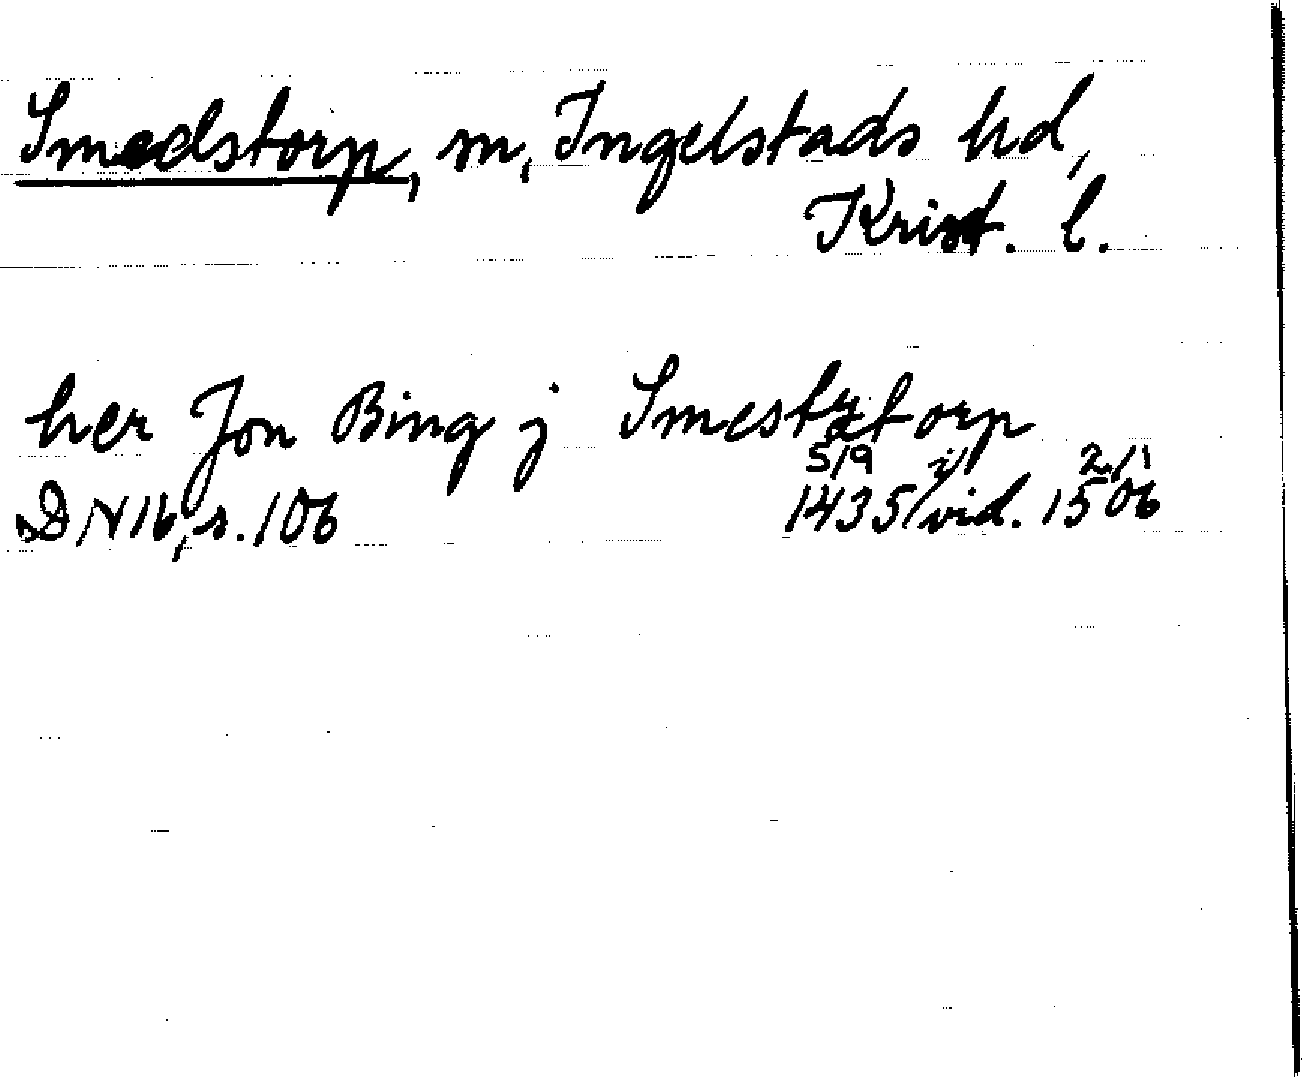 Smedstorp, sn, Ingelstads hd,
Krist. l.
her Jon Bing j Smestorp
5/9 i 2/1
DN 16, s. 106 1435/vid. 1506